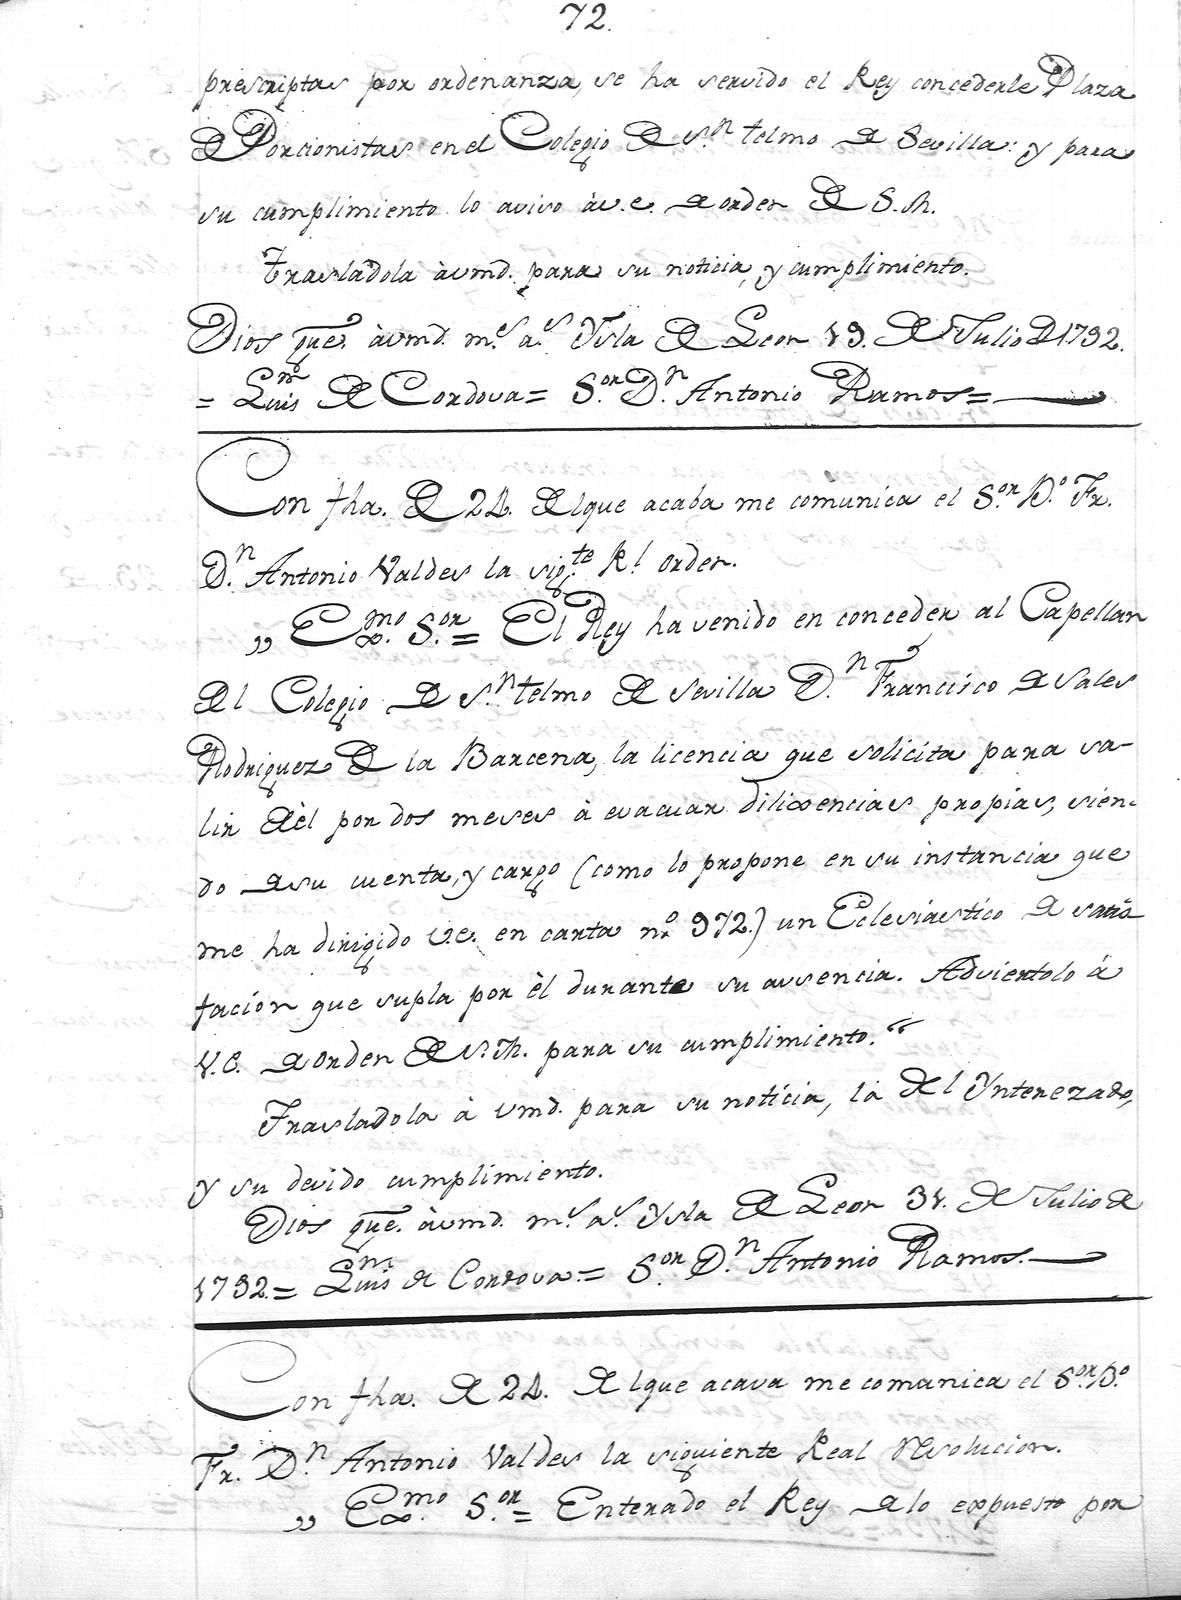 72.
prescriptas por ordenanza, se ha servido el Rey concederle Plaza
de Porcionistas en el Colegio de Sn. Telmo de Sevilla: y para
su cumplimiento lo aviso à v.e. de orden de S.M.
Trasládola à vmd. para su noticia, y cumplimiento.
Dios gue. à vmd. ms. as. Ysla de Leon 19. de Julio de 1792.
= Luis de Cordova = Sor. Dn. Antonio Ramos =
Con fha. de 24. del que acaba me comunica el Sor. Bo. Fr.
Dn. Antonio Valdes la sigte. Rl. orden.
„ Exmo. Sor. = El Rey ha venido en conceder al Capellan
del Colegio de Sn. Telmo de Sevilla Dn. Francisco de Sales
Rodriguez de la Barcena, la licencia que solicita para sa-
lir de èl por dos meses à evacuar dilixencias propias, sien-
do de su cuenta, y cargo (como lo propone en su instancia que
me ha dirigido V.e. en carta no. 972.) un Eclesiastico de satis-
facion que supla por èl durante su ausencia. Adviertolo à
V.e. de orden de S.M. para su cumplimiento.“
Trasladola à vmd. para su noticia, la del Ynterezado,
y su devido cumplimiento.
Dios gue. à vmd. ms. as. Ysla de Leon 31. de Julio de
1792. = Luis de Cordova = Sor. Dn. Antonio Ramos.
Con fha. de 24. del que acava me comunica el Sor. Bo.
Fr. Dn. Antonio Valdes la siguiente Real resolucion.
„ Exmo. Sor. = Enterado el Rey de lo expuesto por